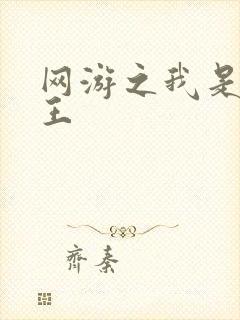 网游之我是
王
齐秦